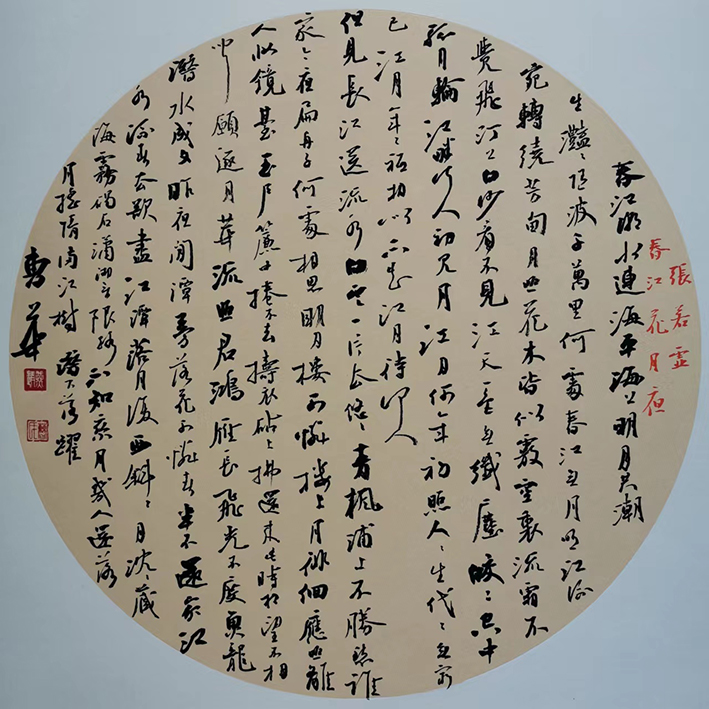 張若虛
春江花月夜
春江潮水連海平海上明月共潮
生灩〻隨波千萬里何處春江無月明江流
宛轉繞芳甸月照花林皆似霰空裏流霜不
覺飛汀上白沙看不見江天一色無纖塵皎〻空中
孤月輪江畔何人初見月江月何年初照人〻生代〻無窮
已江月年〻祗相似不知江月待何人
但見長江送流水白雲一片去悠〻青楓浦上不勝愁誰
家今夜扁舟子何處相思明月樓可憐樓上月徘徊應照離
人妝鏡臺玉戶簾中捲不去擣衣砧上拂還來此時相望不相
聞願逐月華流照君鴻雁長飛光不度魚龍
潛水成文昨夜閒潭夢落花可憐春半不還家江
水流春去欲盡江潭落月復西斜〻月沉〻藏
海霧碣石瀟湘無限路不知乘月幾人還落
月搖情滿江樹 潛下落躍